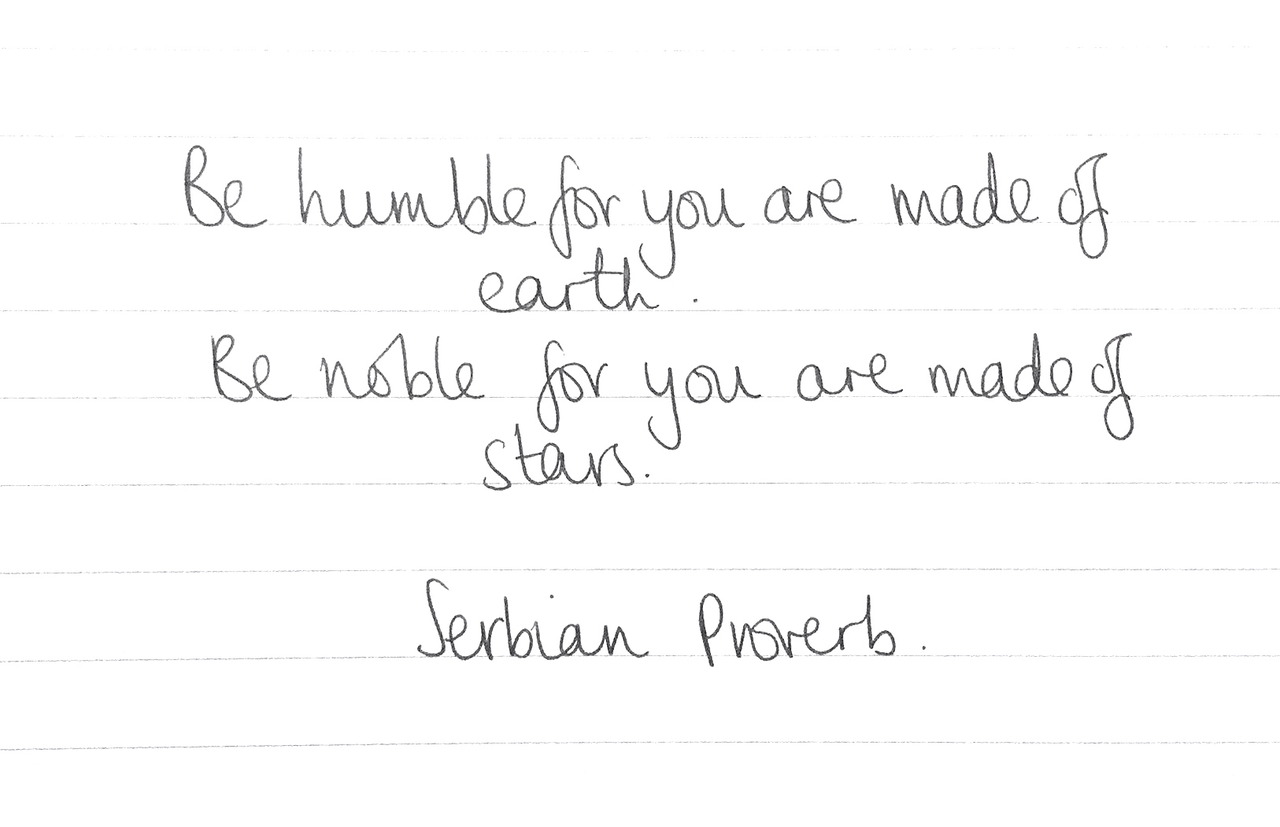 Be humble for you are made of
earth.
Be noble for you are made of
stars.
Serbian Proverb.